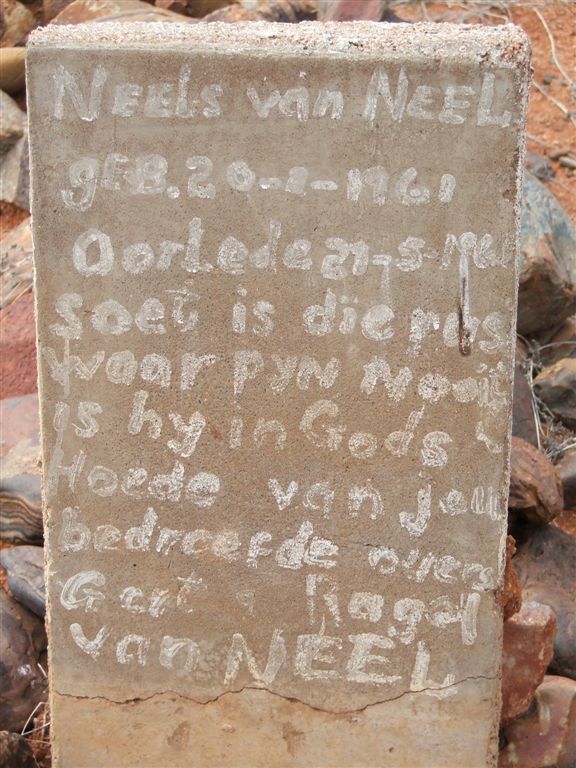 Neels van NEEL
gEB. 20-1-1961
Oorlede 21-5-1961
soet is die rus
Waar pyn Nooit
is hy in Gods
Hoede van jou
bedroefde ouers
Gert Ragel
van NEEL